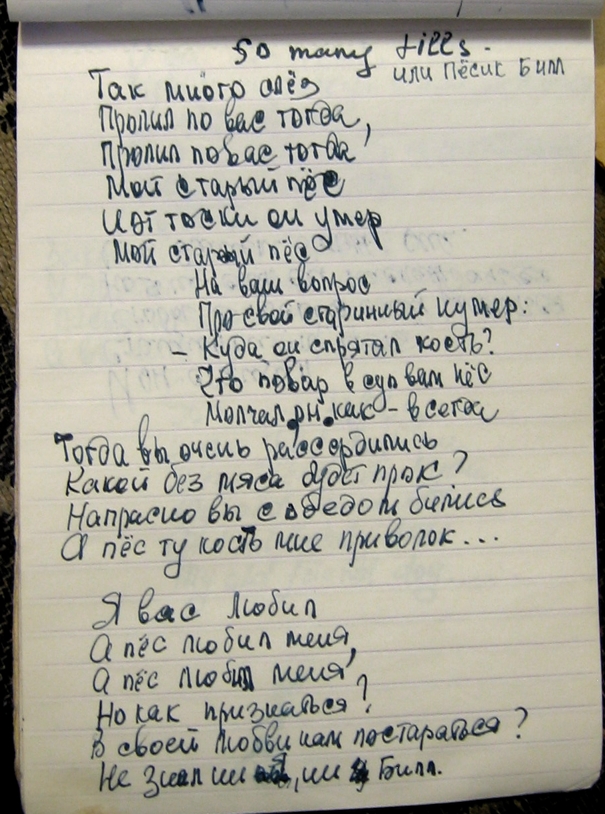 So many tills.
или Пёсик Билл
Так много слёз
Пролил по вас тогда,
Пролил по вас тогда
Мой старый пёс
И от тоски он умер
Мой старый пёс
На ваш вопрос
Про свой старинный нумер:
- Куда он спрятал кость?
Что повар в суп вам нёс
Молчал он, как - всегда
Тогда вы очень рассердились
Какой без мяса будет прок?
Напрасно вы с обедом бились
А пёс ту кость мне приволок...
Я вас любил
А пёс любил меня,
А пёс любил меня
Но как признаться?
В своей любви нам постараться?
Не знал ни я, ни Билл.